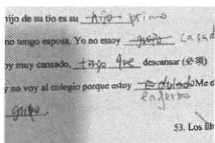 hijo de su tío es su hijo primo
no tengo esposa. Yo no estoy casad
oy muy cansado, tengo que descansar (必须)
y no voy al colegio porque estoy Me d
enfermo
gripe.
53. Los lib